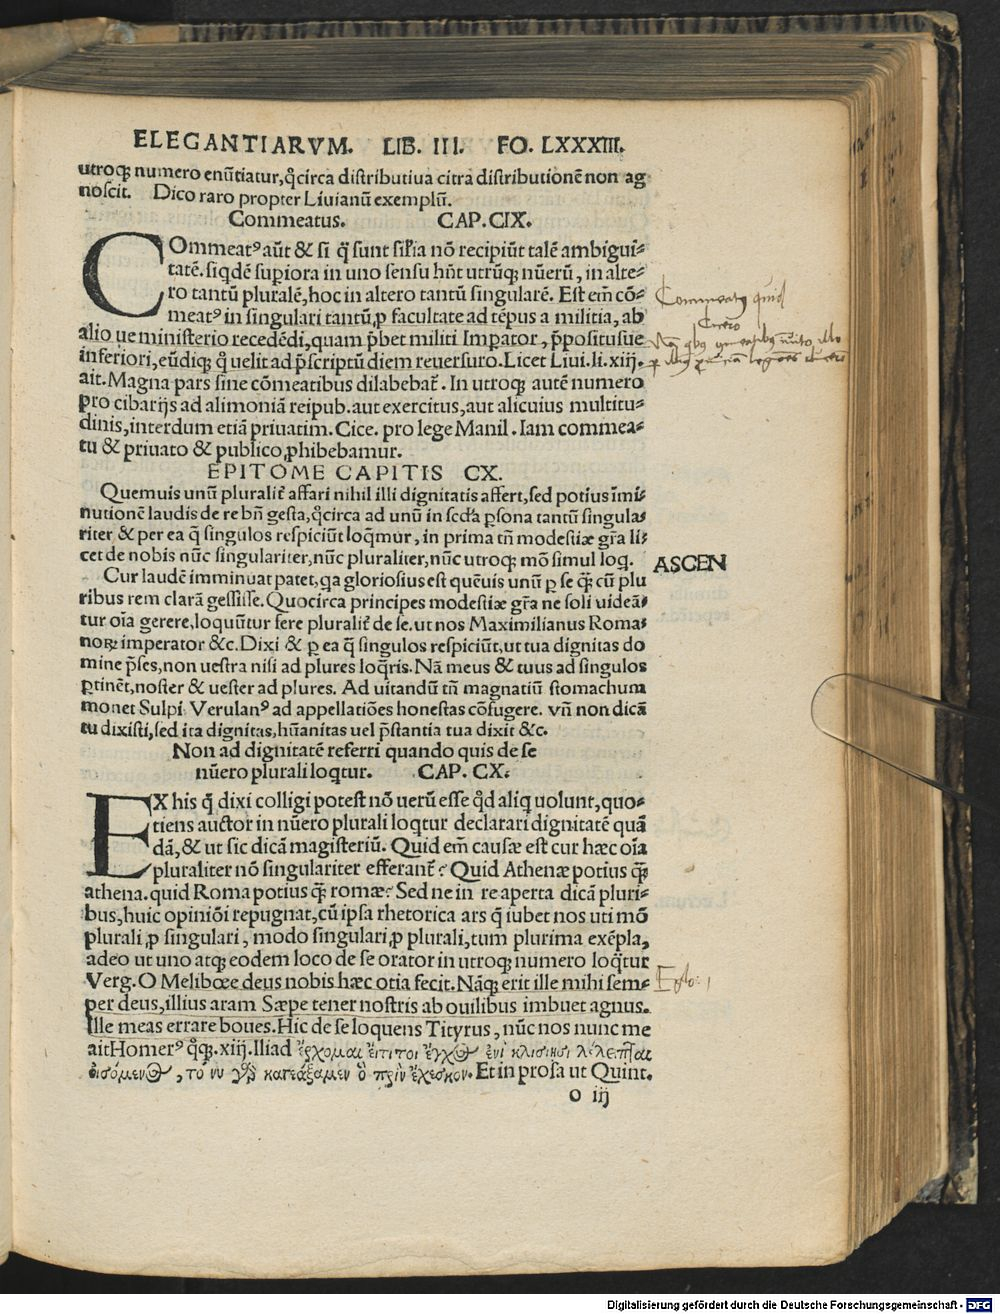 ELEGANTIARVM. LIB. III. FO. LXXXIII.
utroqꝫ numero enũtiatur,q̃circa distributiua citra distributionẽ non ag
noscit. Dico raro propter Liuianũ exemplũ.
Commeatus. CAP.CIX.
COmmeatꝰ aũt & si q̃ sunt sil̃ia nõ recipiũt talẽ ambigui⸗
tatẽ.siqdẽ supiora in uno sensu hñt utrũqꝫ nũerũ, in alte⸗
ro tantũ pluralẽ,hoc in altero tantũ singularẽ. Est em̃ cõ⸗
meatꝰ in singulari tantũ,ꝓ facultate ad tẽpus a militia, ab
alio ue ministerio recedẽdi,quam p̃bet militi Impator, p̃positusue
inferiori, eũdiqꝫ q̃ uelit ad p̃scriptũ diem reuersuro. Licet Liui.li.xiij.
ait. Magna pars sine cõmeatibus dilabebat̃. In utroqꝫ autẽ numero
pro cibarijs ad alimoniã reipub.aut exercitus,aut alicuius multitu⸗
dinis,interdum etiã priuatim. Cice. pro lege Manil. Iam commea⸗
tu & priuato & publico,ꝓhibebamur.
EPITOME CAPITIS CX.
Quemuis unũ pluralit̃ affari nihil illi dignitatis affert,sed potius ĩmi⸗
nutionẽ laudis de re bñ gesta,q̃circa ad unũ in secda ꝑsona tantũ singula⸗
riter & per ea q̃ singulos respiciũt loq̃mur, in prima tñ modestiæ gr̃a li⸗
cet de nobis nũc singulariter,nũc pluraliter,nũc utroqꝫ mõ simul loq.
ASCEN
Cur laudẽ imminuat patet,qa gloriosius est quẽuis unũ ꝑ se q̃ꝫ cũ plu
ribus rem clarã gessisse. Quocirca principes modestiæ gr̃a ne soli uideã⸗
tur oĩa gerere,loquũtur fere pluralit̃ de se.ut nos Maximilianus Roma⸗
noꝝ imperator &c. Dixi & ꝑ ea q̃ singulos respiciũt,ut tua dignitas do
mine p̃ses,non uestra nisi ad plures loq̃ris. Nã meus & tuus ad singulos
ꝑtinẽt,noster & uester ad plures. Ad uitandũ tñ magnatiũ stomachum
monet Sulpi. Verulanꝰ ad appellatiões honestas cõfugere. vñ non dicã
tu dixisti,sed ita dignitas,hũanitas uel p̃stantia tua dixit &c.
Non ad dignitatẽ referri quando quis de se
nũero plurali loqtur. CAP. CX.
EX his q̃ dixi colligi potest nõ uerũ esse qd̃ aliq uolunt,quo⸗
tiens auctor in nũero plurali loqtur declarari dignitatẽ quã
dã,& ut sic dicã magisteriũ. Quid em̃ causæ est cur hæc oĩa
pluraliter nõ singulariter efferant̃? Quid Athenæ potius q̃ꝫ
athena.quid Roma potius q̃ꝫ romæ? Sed ne in re aperta dicã pluri⸗
bus,huic opiniõi repugnat,cũ ipsa rhetorica ars q̃ iubet nos uti mõ
plurali ,ꝓ singulari, modo singulari,ꝓ plurali,tum plurima exẽpla,
adeo ut uno atqꝫ eodem loco de se orator in utroqꝫ numero loq̃tur
Verg. O Melibœe deus nobis hæc otia fecit. Nãqꝫ erit ille mihi sem⸗
per deus,illius aram Sæpe tener nostris ab ouilibus imbuet agnus.
Ille meas errare boues. Hic de se loquens Tityrus, nũc nos nunc me
ait Homerꝰ q̃qꝫ. xiij. Iliad ἔρχομαι εἴ τί τοι ἔγχος ἐνὶ κλισίῃσι λέλειπται
οἰσόμενος, τό νυ γὰρ κατεάξαμεν ὃ πρὶν ἔχεσκον. Et in prosa ut Quint.
o iij
Commeatꝰ quid
Cicero
Eglo: 1
Digitalisierung gefördert durch die Deutsche Forschungsgemeinschaft - DFG